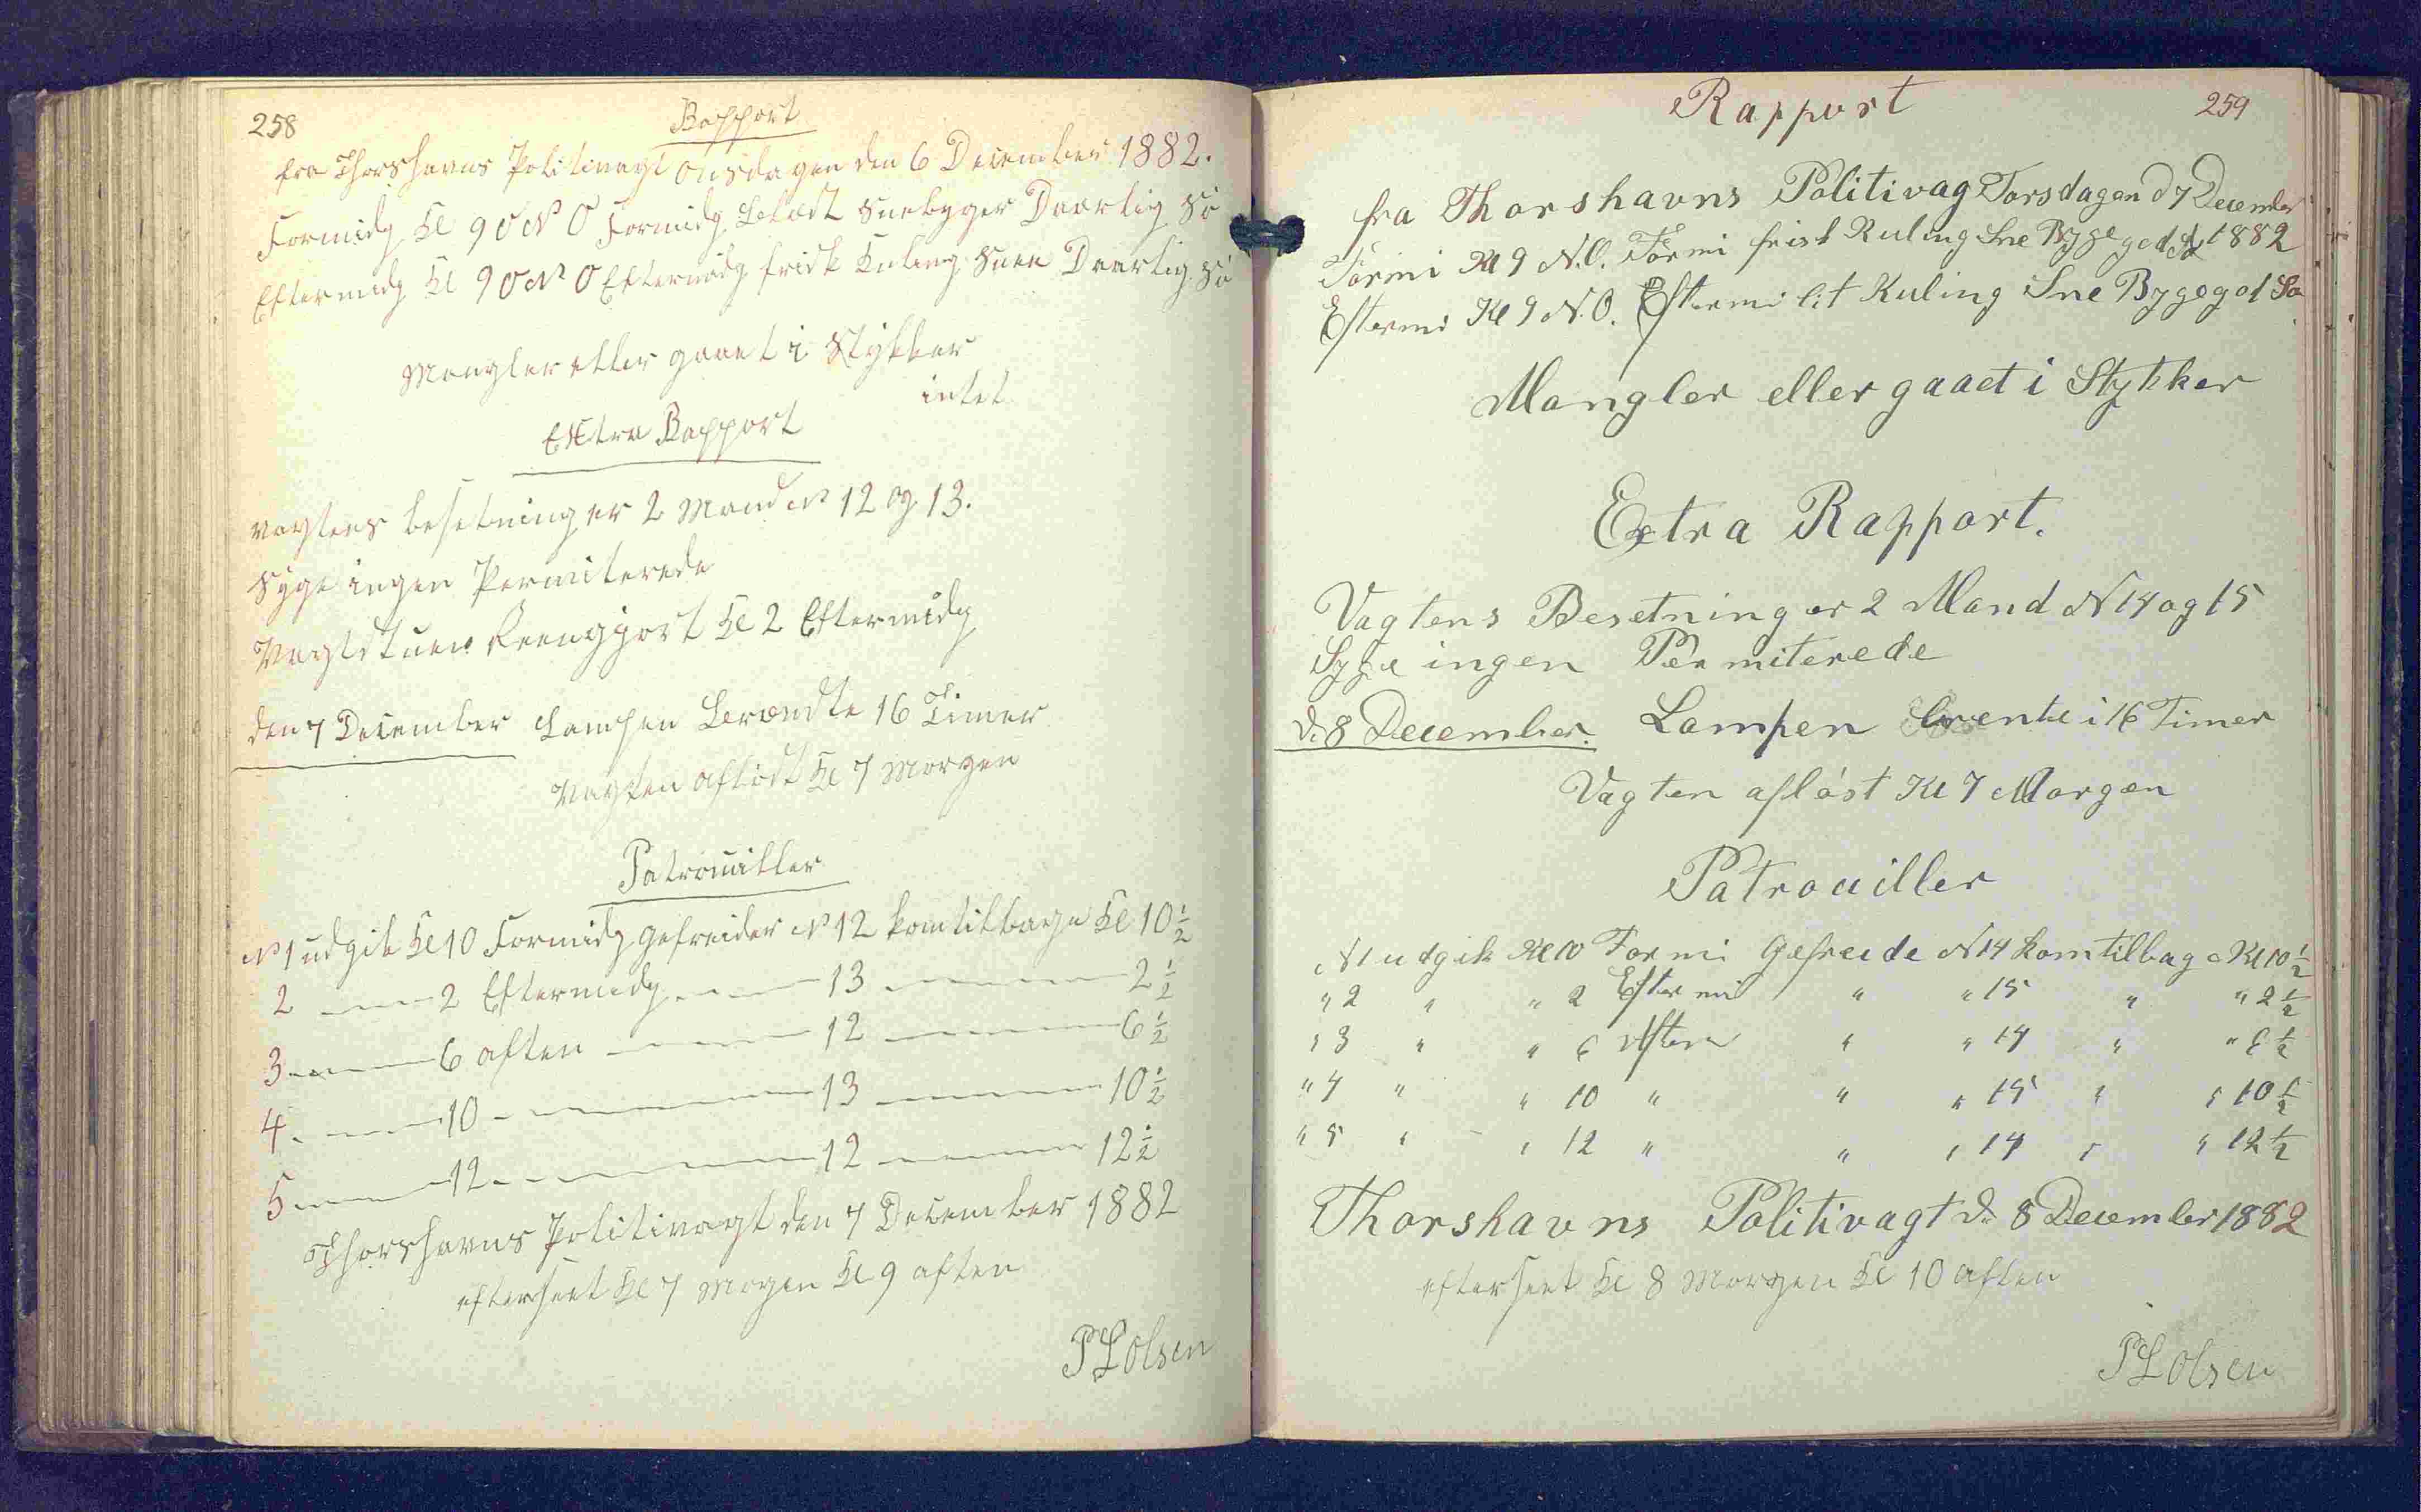 258
Rapport
fra Thorshavns Politivagt Onsdagen den 6 December 1882.
Formidg Kl 9 O N O Formidg Letedt Snebyger Daarlig Sö
Eftermidg Kl 9 O N O Eftermidg frisk Kuling Snee Daarlig Sö
Mangler eller gaaet i Stykker
intet
Extra Rapport
Vagtens besetning er 2 Mand No 12 og 13.
Syge ingen Permiterede
Vagtstuen Reengjort Kl 2 Eftermidg
den 7 December Lampen Brændte 16 Timer
Vagten aflöst Kl 7 Morgen
Patrouiller
No 1 udgik Kl 10 Formidg gefreider No 12 kom tilbage Kl 10 1/2
2 — 2 Eftermidg — 13 — 2 1/2
3 — 6 aften — 12 — 6 1/2
4 — 10 — 13 — 10 1/2
5 — 12 — 12 — 12 1/2
Thorshavns Politivagt den 7 December 1882
efterseet Kl 7 Mogen Kl 9 aften
P L Olsen
Rapport
259
fra Thorshavns Politivag Torsdagen d 7 December
1882
Formi Kl 9 N.O. Formi frisk Kuling Sne Byge god Sö
Eftermi Kl 9 N.O. Eftermi lit Kuling Sne Byge god Sö
Mangler eller gaaet i Stykker
Extra Rapport.
Vagtens Besetning er 2 Mand N 14 og 15
Syge ingen Permiterede
d. 8 December. Lampen brente i 16 Timer
Vagten aflöst Kl 7 Morgen
Patrouiller
N 1 udgik Kl 10 Formi Gefreide N 14 kom tilbage Kl 10 1/2
" 2 " " 2 Eftermi " " 15 " " 2 1/2
" 3 " " 6 Aften " " 14 " " 6 1/2
" 4 " " 10 " " " 15 " " 10 1/2
" 5 " " 12 " " " 14 " " 12 1/2
Thorshavns Politivagt d. 8 December 1882
efterseet Kl 8 Morgen Kl 10 aften
P L Olsen